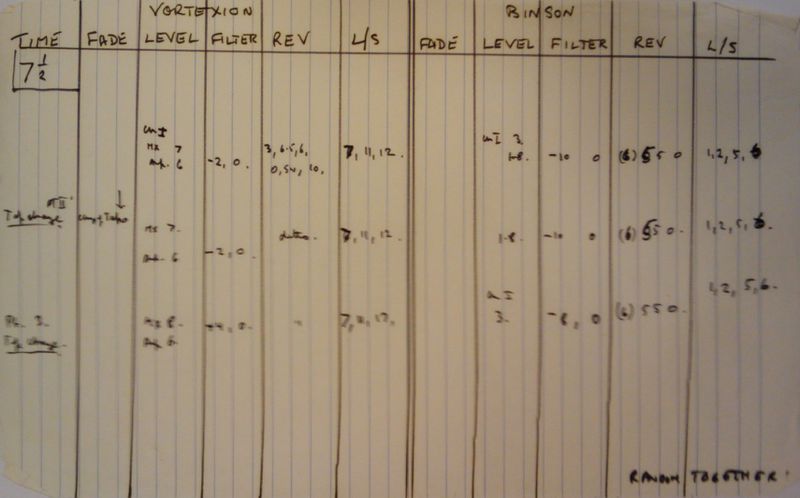 VORTEXION BINSON
TIME FADE LEVEL FILTER REV L/S FADE LEVEL FILTER REV L/S
7 1/2
Mx 7 3, 6.5, 6, 7, 11, 12. 3.
6 -2, 0. 0, 10, 1-8. -10 0 (6) 5 5 0 1, 2, 5, 6
Tape change Mx 7. ditto. 7, 11, 12. 1-8. -10 0 (6) 5 5 0. 1, 2, 5, 6.
6 -2, 0.
1, 2, 5, 6.
Pt. 3. Mx 8. " 7, 11, 12. 3. -8, 0 (6) 5 5 0.
Tape change. 6.
RANDOM TOGETHER